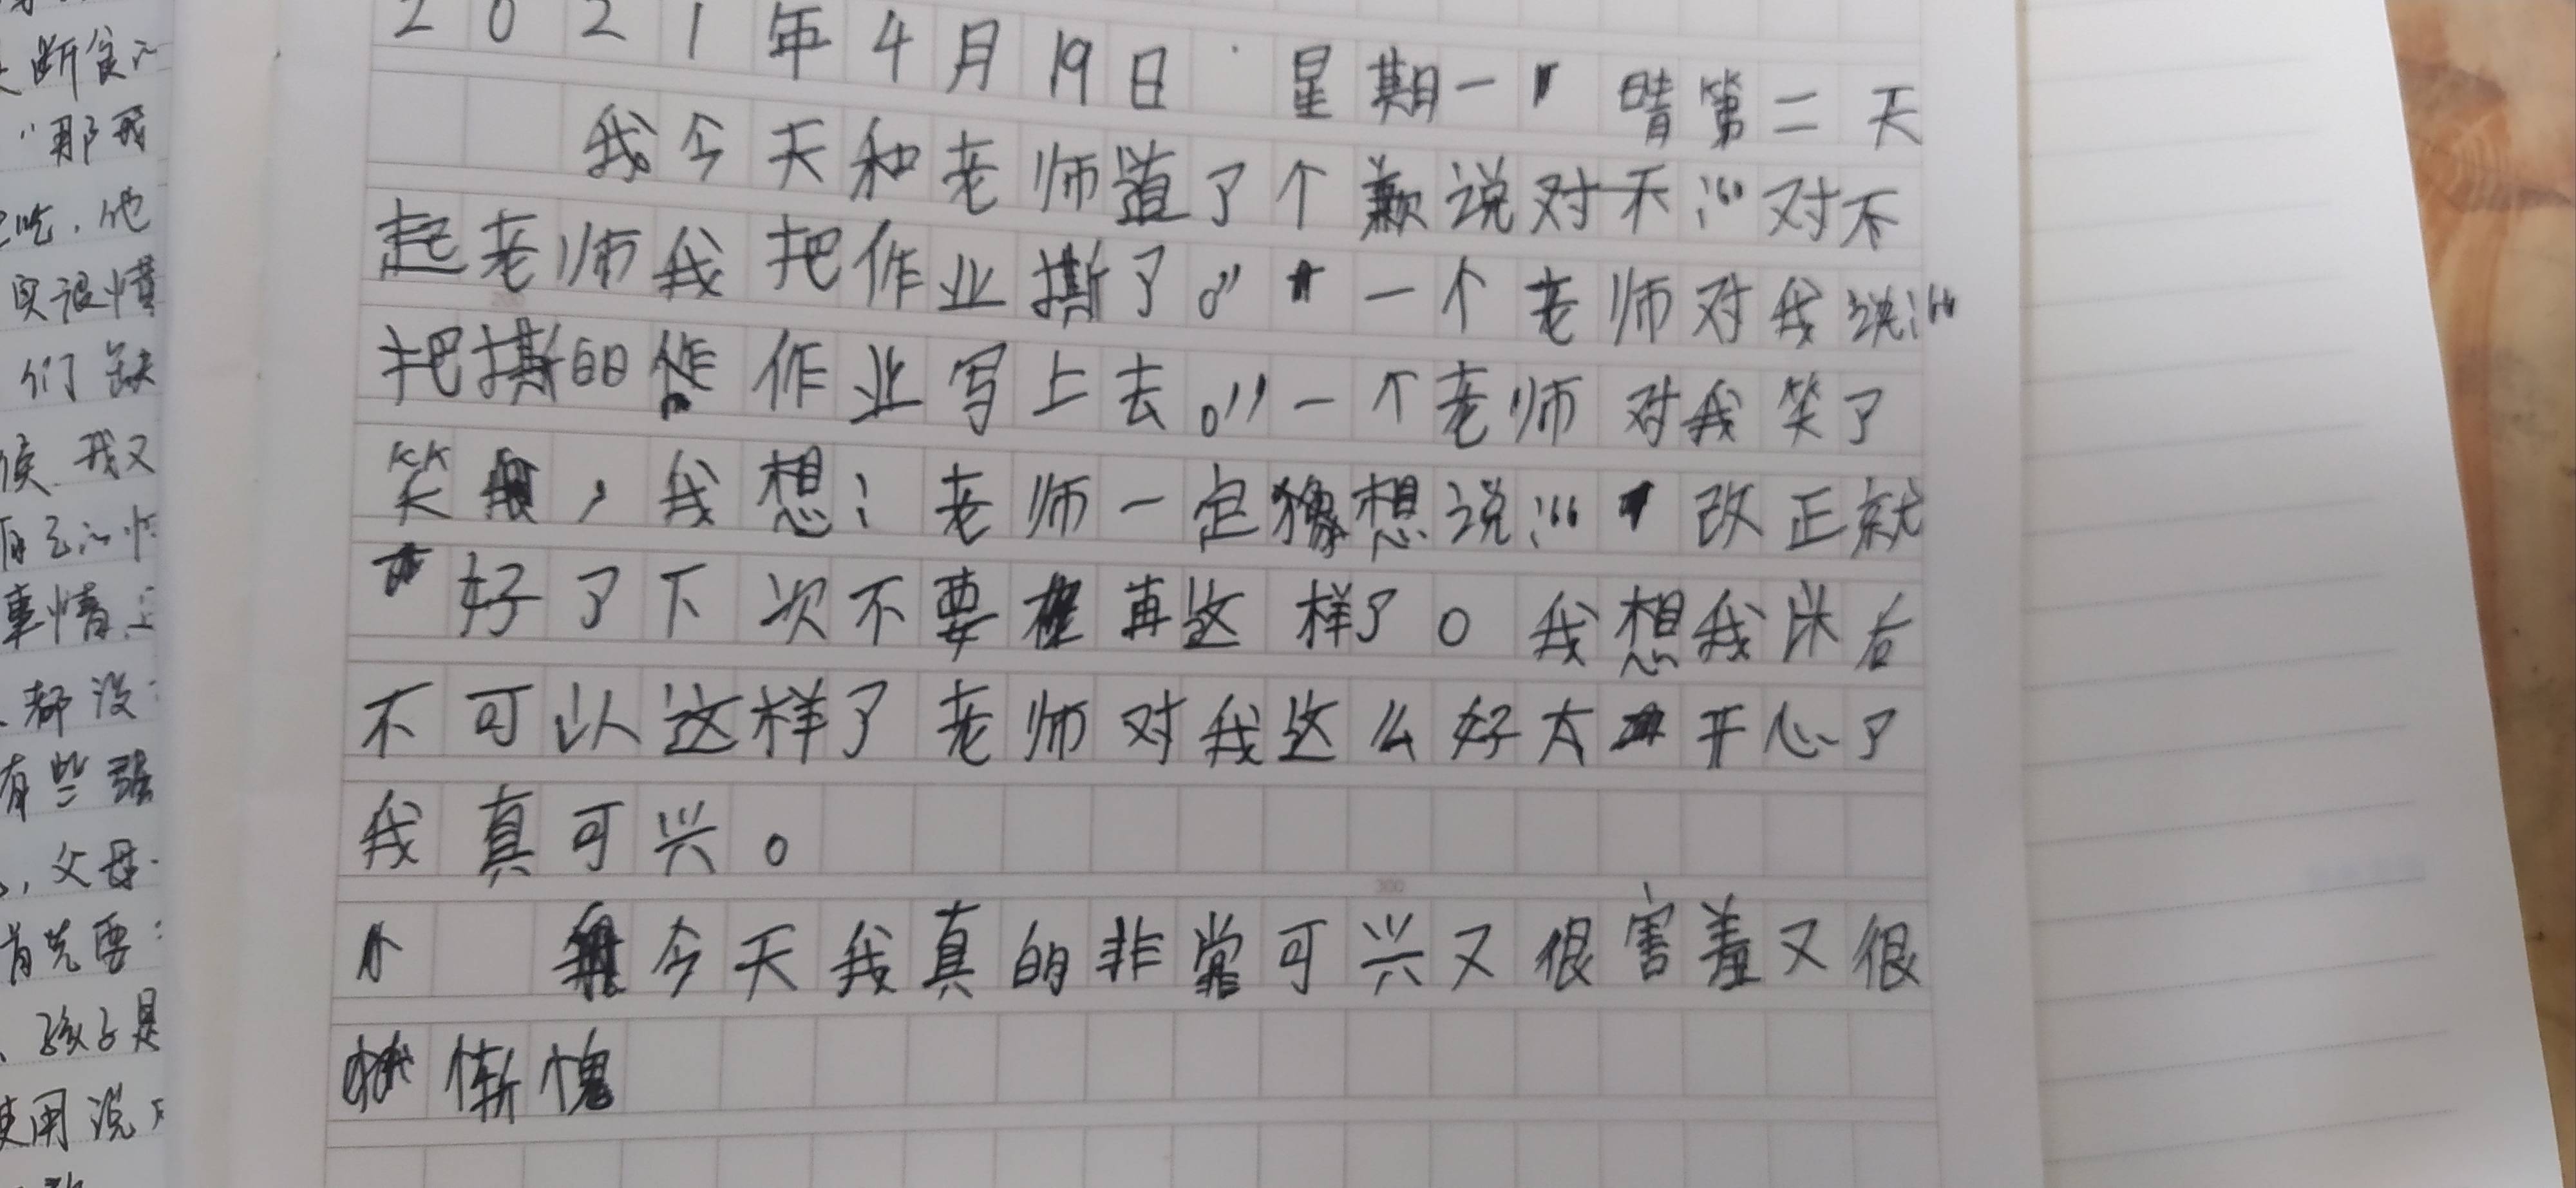 2021年4月19日 星期一 晴第二天
我今天和老师道了个歉说对不:“对不
起老师我把作业撕了。”一个老师对我说:“
把撕的作业写上去。”一个老师对我笑了
笑,我想:老师一定想说:“改正就
好了下次不要再这样了。我想我以后
不可以这样了老师对我这么好太开心了
我真可兴。
今天我真的非常可兴又很害羞又很
惭愧
断食
“那我
吃,他
实很惯
们缺
候我又
事情上
都没
有些强
,父母
首先要
孩子是
使用说